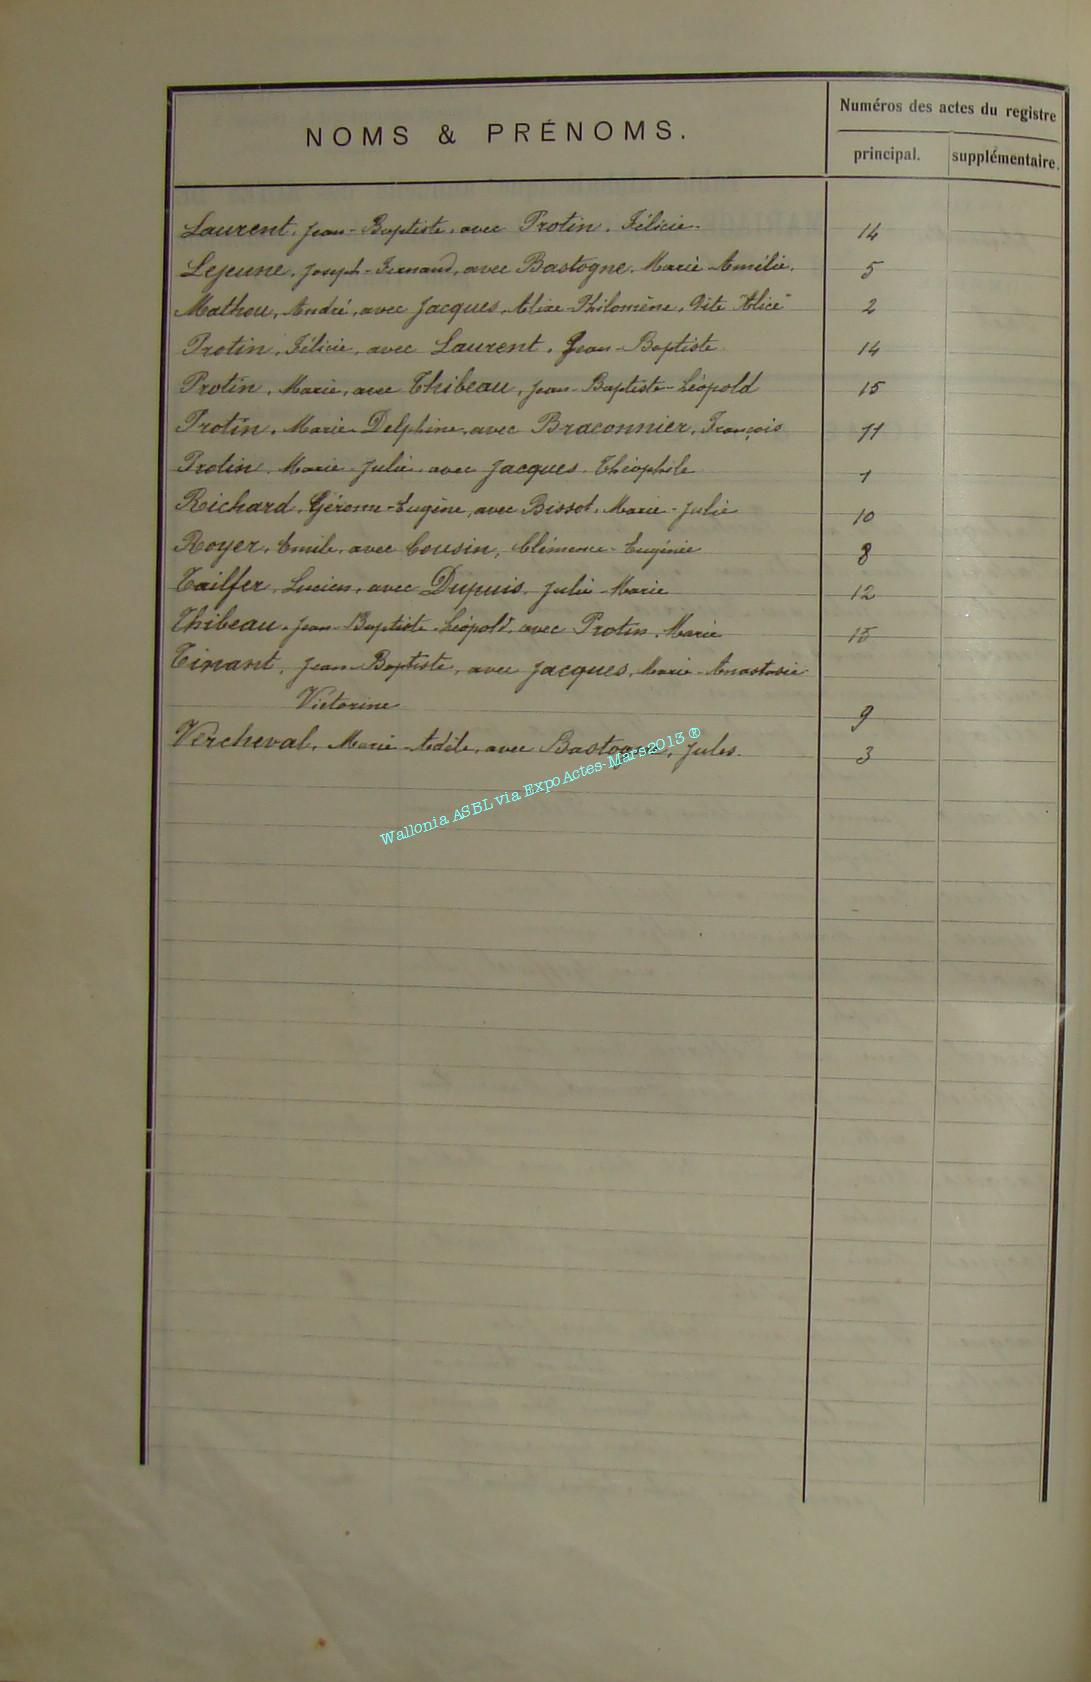 Numéros des actes du registre
NOMS & PRÉNOMS.
principal.
supplémentaire.
Laurent, Jean-Baptiste, avec Protin, Félicie. 14
Lejeune, Joseph-Fernand, avec Bastogne, Marie-Amélie. 5
Mathou, André, avec Jacques, Alixe-Philomène, dite "Alice" 2
Protin, Félicie, avec Laurent, Jean-Baptiste 14
Protin, Marie, avec Thibeau, Jean-Baptiste-Léopold 15
Protin, Marie-Delphine, avec Braconnier, François 11
Protin, Marie-Julie, avec Jacques, Théophile 1
Richard, Gérome-Eugène, avec Bissot, Marie-Julie 10
Royer, Emile, avec Cousin, Clémence-Eugénie 8
Tailfer, Lucien, avec Dupuis, Julie-Marie 12
Thibeau, Jean-Baptiste-Léopold, avec Protin, Marie 15
Tinant, Jean-Baptiste, avec Jacques, Marie-Anastasie
Victorine 9
Vercheval, Marie-Adèle, avec Bastogne, Jules. 3
Wallonia ASBL via ExpoActes-Mars2013 ®